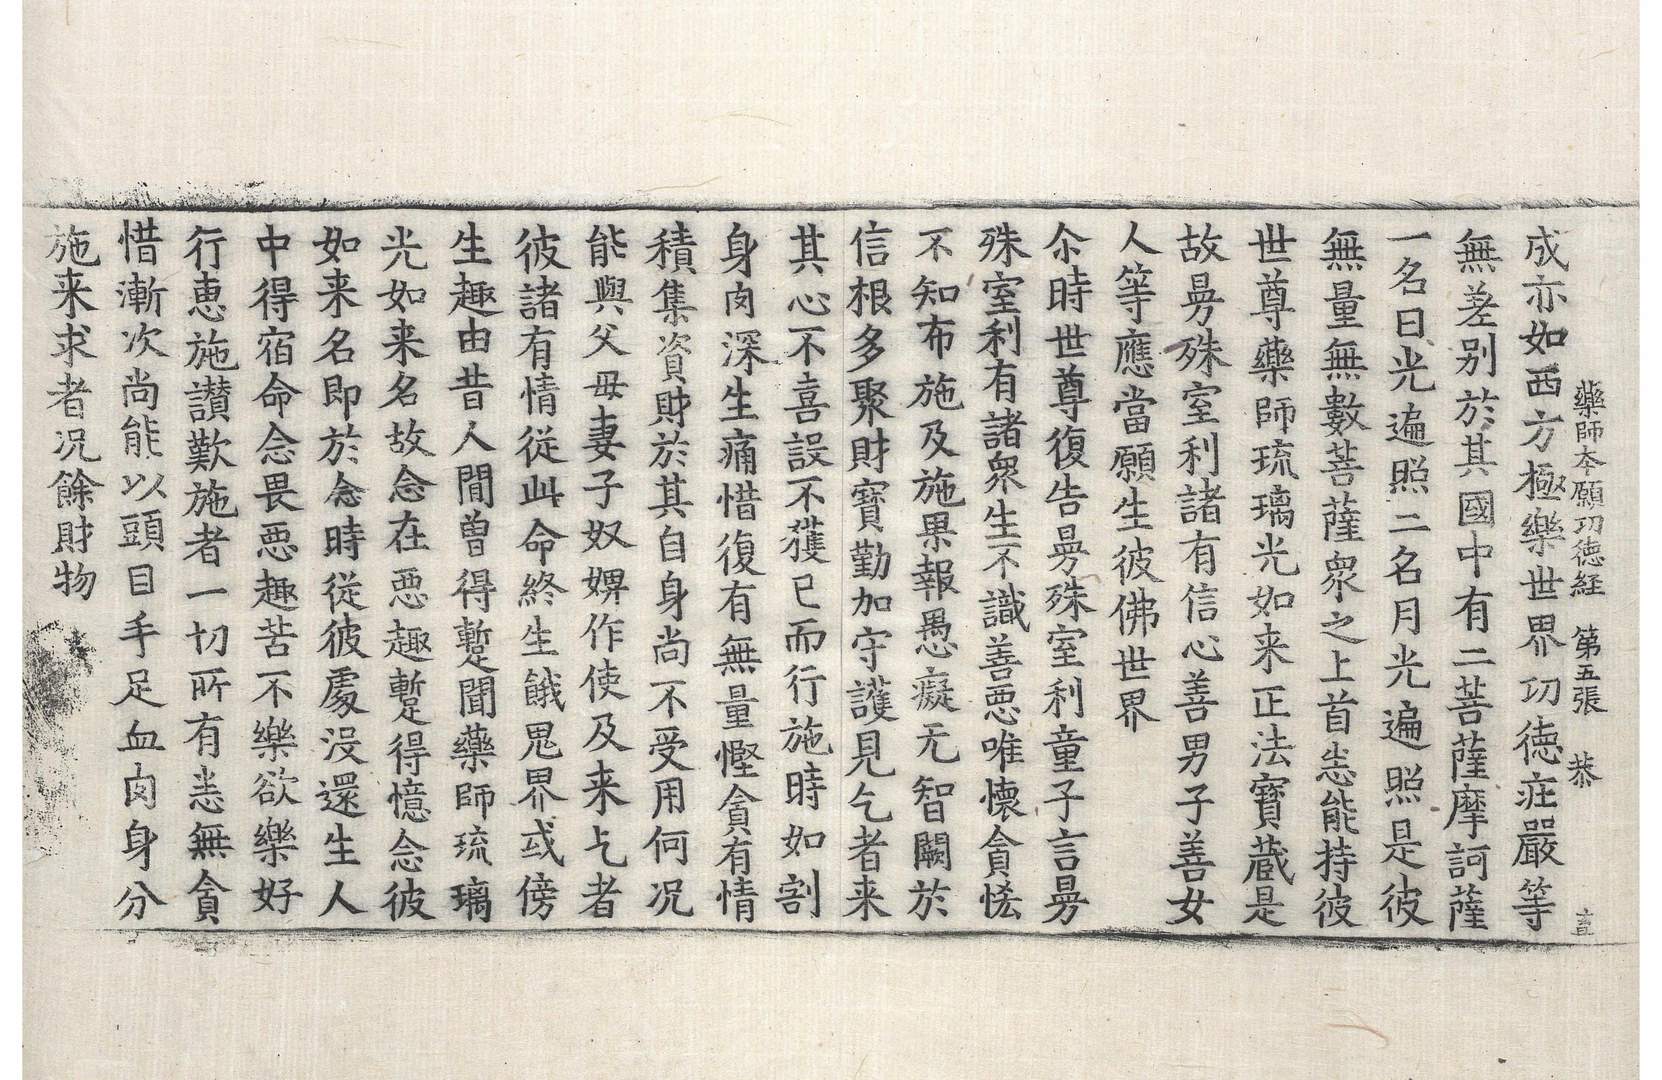 藥師夲願功徳経　第五張　恭
成亦如西方極樂世界功徳庄嚴等
無差别於其國中有二菩薩摩訶薩
一名日光遍照二名月光遍照是彼
無量無數菩薩衆之上首悉能持彼
世尊藥師琉璃光如来正法寶蔵是
故曼殊室利諸有信心善男子善女
人等應當願生彼佛世界
尒時世尊復告曼殊室利童子言曼
殊室利有諸衆生不識善惡唯懐貪恡
不知布施及施果報愚癡无智闕於
信根多聚財寶勤加守護見乞者来
其心不喜設不獲已而行施時如割
身肉深生痛惜復有無量慳貪有情
積集資財於其自身尚不受用何况
能與父母妻子奴婢作使及来乞者
彼諸有情従此命終生餓鬼界或傍
生趣由昔人間曾得蹔聞藥師琉璃
光如来名故念在惡趣蹔得憶念彼
如来名即於念時従彼處没還生人
中得宿命念畏惡趣苦不樂欲樂好
行惠施讃歎施者一切所有悉無貪
惜漸次尚能以頭目手足血肉身分
施来求者况餘財物